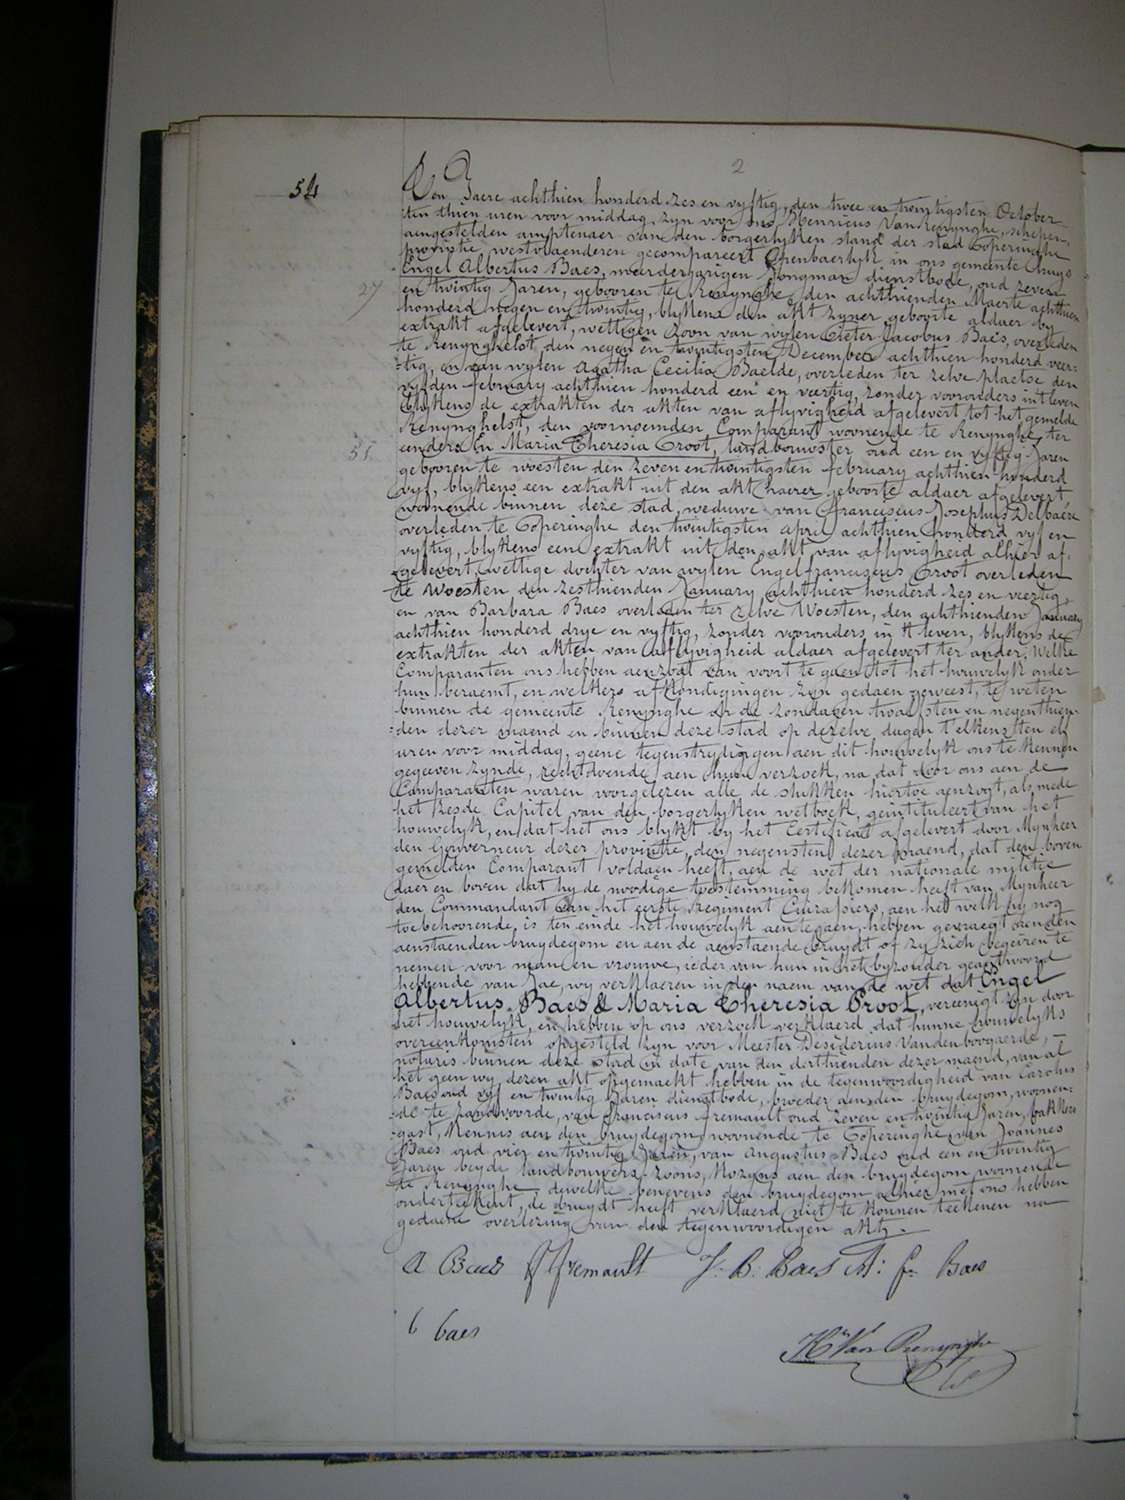 2
54
Den Jaere achthien honderd zes en vyftig, den twee en twintigsten October
ten thien uren voor middag, zyn voor ons, Henricus Van Renynghe, schepen,
aengestelden amptenaer van den borgerlyken stand der stad Poperinghe
provintie westvlaenderen gecompareert openbaerlyk in ons gemeente huys
Engel Albertus Baes, meerderjarigen Jongman dienstbode, oud zeven
27
en twintig Jaren, gebooren te Renynghe den achthienden Maerte achthien
honderd negen en twintig, blykens den akt zyner geboorte aldaer by
extrakt afgelevert, wettigen Zoon van wylen Pieter Jacobus Baes, overleden
te Renynghelst den negen en twintigsten December achthien honderd veer-
-tig, en van wylen Agatha Cecilia Baelde, overleden ter zelve plaetse den
vyfden february achthien honderd een en veertig, zonder voorouders in 't leven
blykens de extrakten der akten van aflyvigheid afgelevert tot het gemelde
Renynghelst, den voornoemden Comparant woonende te Renynghe, ter
eendere En Maria Theresia Proot, landbouwster oud een en vyftig Jaren
51
gebooren te woesten den zeven en twintigsten february achthien honderd
vyf, blykens een extrakt uit den akt haerer geboorte aldaer afgelevert
woonende binnen deze stad, weduwe van Franciscus Josephus Delbaere
overleden te Poperinghe den twintigsten april achthien honderd vyf en
vyftig, blykens een extrakt uit den akt van aflyvigheid alhier af-
-gelevert, wettige dochter van wylen Engel franciscus Proot overleden
te Woesten den zesthienden January achthien honderd zes en veertig,
en van Barbara Baes overleden ter zelve Woesten, den achthienden January
achthien honderd drye en vyftig, zonder voorouders in 't leven, blykens de
extrakten der akten van aflyvigheid aldaer afgelevert ter ander. Welke
Comparanten ons hebben aenzogt van voort te gaen tot het houwelyk onder
hun beraemt, en welkers afkondigingen zyn gedaen geweest, te weten
binnen de gemeente Renynghe op de zondagen twaelfsten en negenthien-
-den dezer maend en binnen deze stad op dezelve dagen t'elkens ten elf
uren voor middag, geene tegenstrydingen aen dit houwelyk ons te kennen
gegeeven zynde, rechtdoende aen hun verzoek, na dat door ons aen de
Comparanten waren voorgelezen alle de stukken hiertoe aenzogt, als mede
het Zesde Capitel van den borgerlyken wetboek, geintituleert van het
houwelyk, en dat het ons blykt by het Certificat afgelevert door Mynheer
den Gouverneur dezer provintie, den negensten dezer maend, dat den boven
gemelden Comparant voldaen heeft, aen de wet der nationale militie
daer en boven dat hy de noodige toestemming bekomen heeft van Mynheer
den Commandant van het eerste regiment Cuirassiers, aen het welk hy nog
toebehoorende, is ten einde het houwelyk aen te gaen, hebben gevraegt aen den
aenstaenden bruydegom en aen de aenstaende bruydt of zy zich begeiren te
nemen voor man en vrouwe, ieder van hun in het byzonder geantwoord
hebbende van Jae, wy verklaeren in den naem van de wet dat Engel
Albertus Baes & Maria Theresia Proot, vereenigt zyn door
het houwelyk, en hebben op ons verzoek verklaerd dat hunne houwelyks
overeenkomsten opgesteld zyn voor Meester Desiderius Vandenboogaerde,
notaris binnen deze stad in date van den derthienden dezer maend, van al
het geen wy dezen akt opgemaekt hebben in de tegenwoordigheid van Carolus
Baes oud vyf en twintig Jaren dienstbode, broeder aen den bruydegom, woonen-
-de te Zandvoorde, van Franciscus Fremault oud zeven en twintig Jaren, bakkers
gast, kennis aen den bruydegom woonende te Poperinghe, van Joannes
Baes oud vier en twintig Jaren, van Augustus Baes oud een en twintig
Jaren beyde landbouwers zoons, Kozyns aen den bruydegom woonende
te Renynghe dewelke benevens den bruydegom alhier met ons hebben
onderteekent, de bruydt heeft verklaerd niet te konnen teekenen na
gedaene overlezing van den tegenwoordigen akt.
A Baes F fremault J. B. Baes A: f. Baes
C baes
Hri Van Renynghe